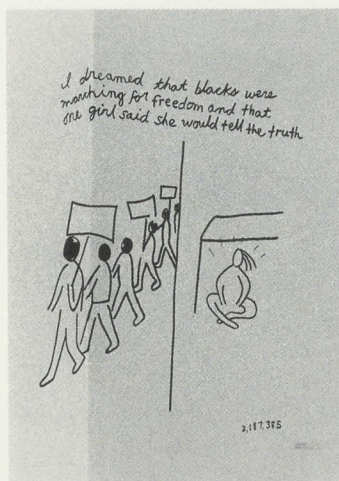 I dreamed that blacks were
marching for freedom and that
one girl said she would tell the truth
2,187,385